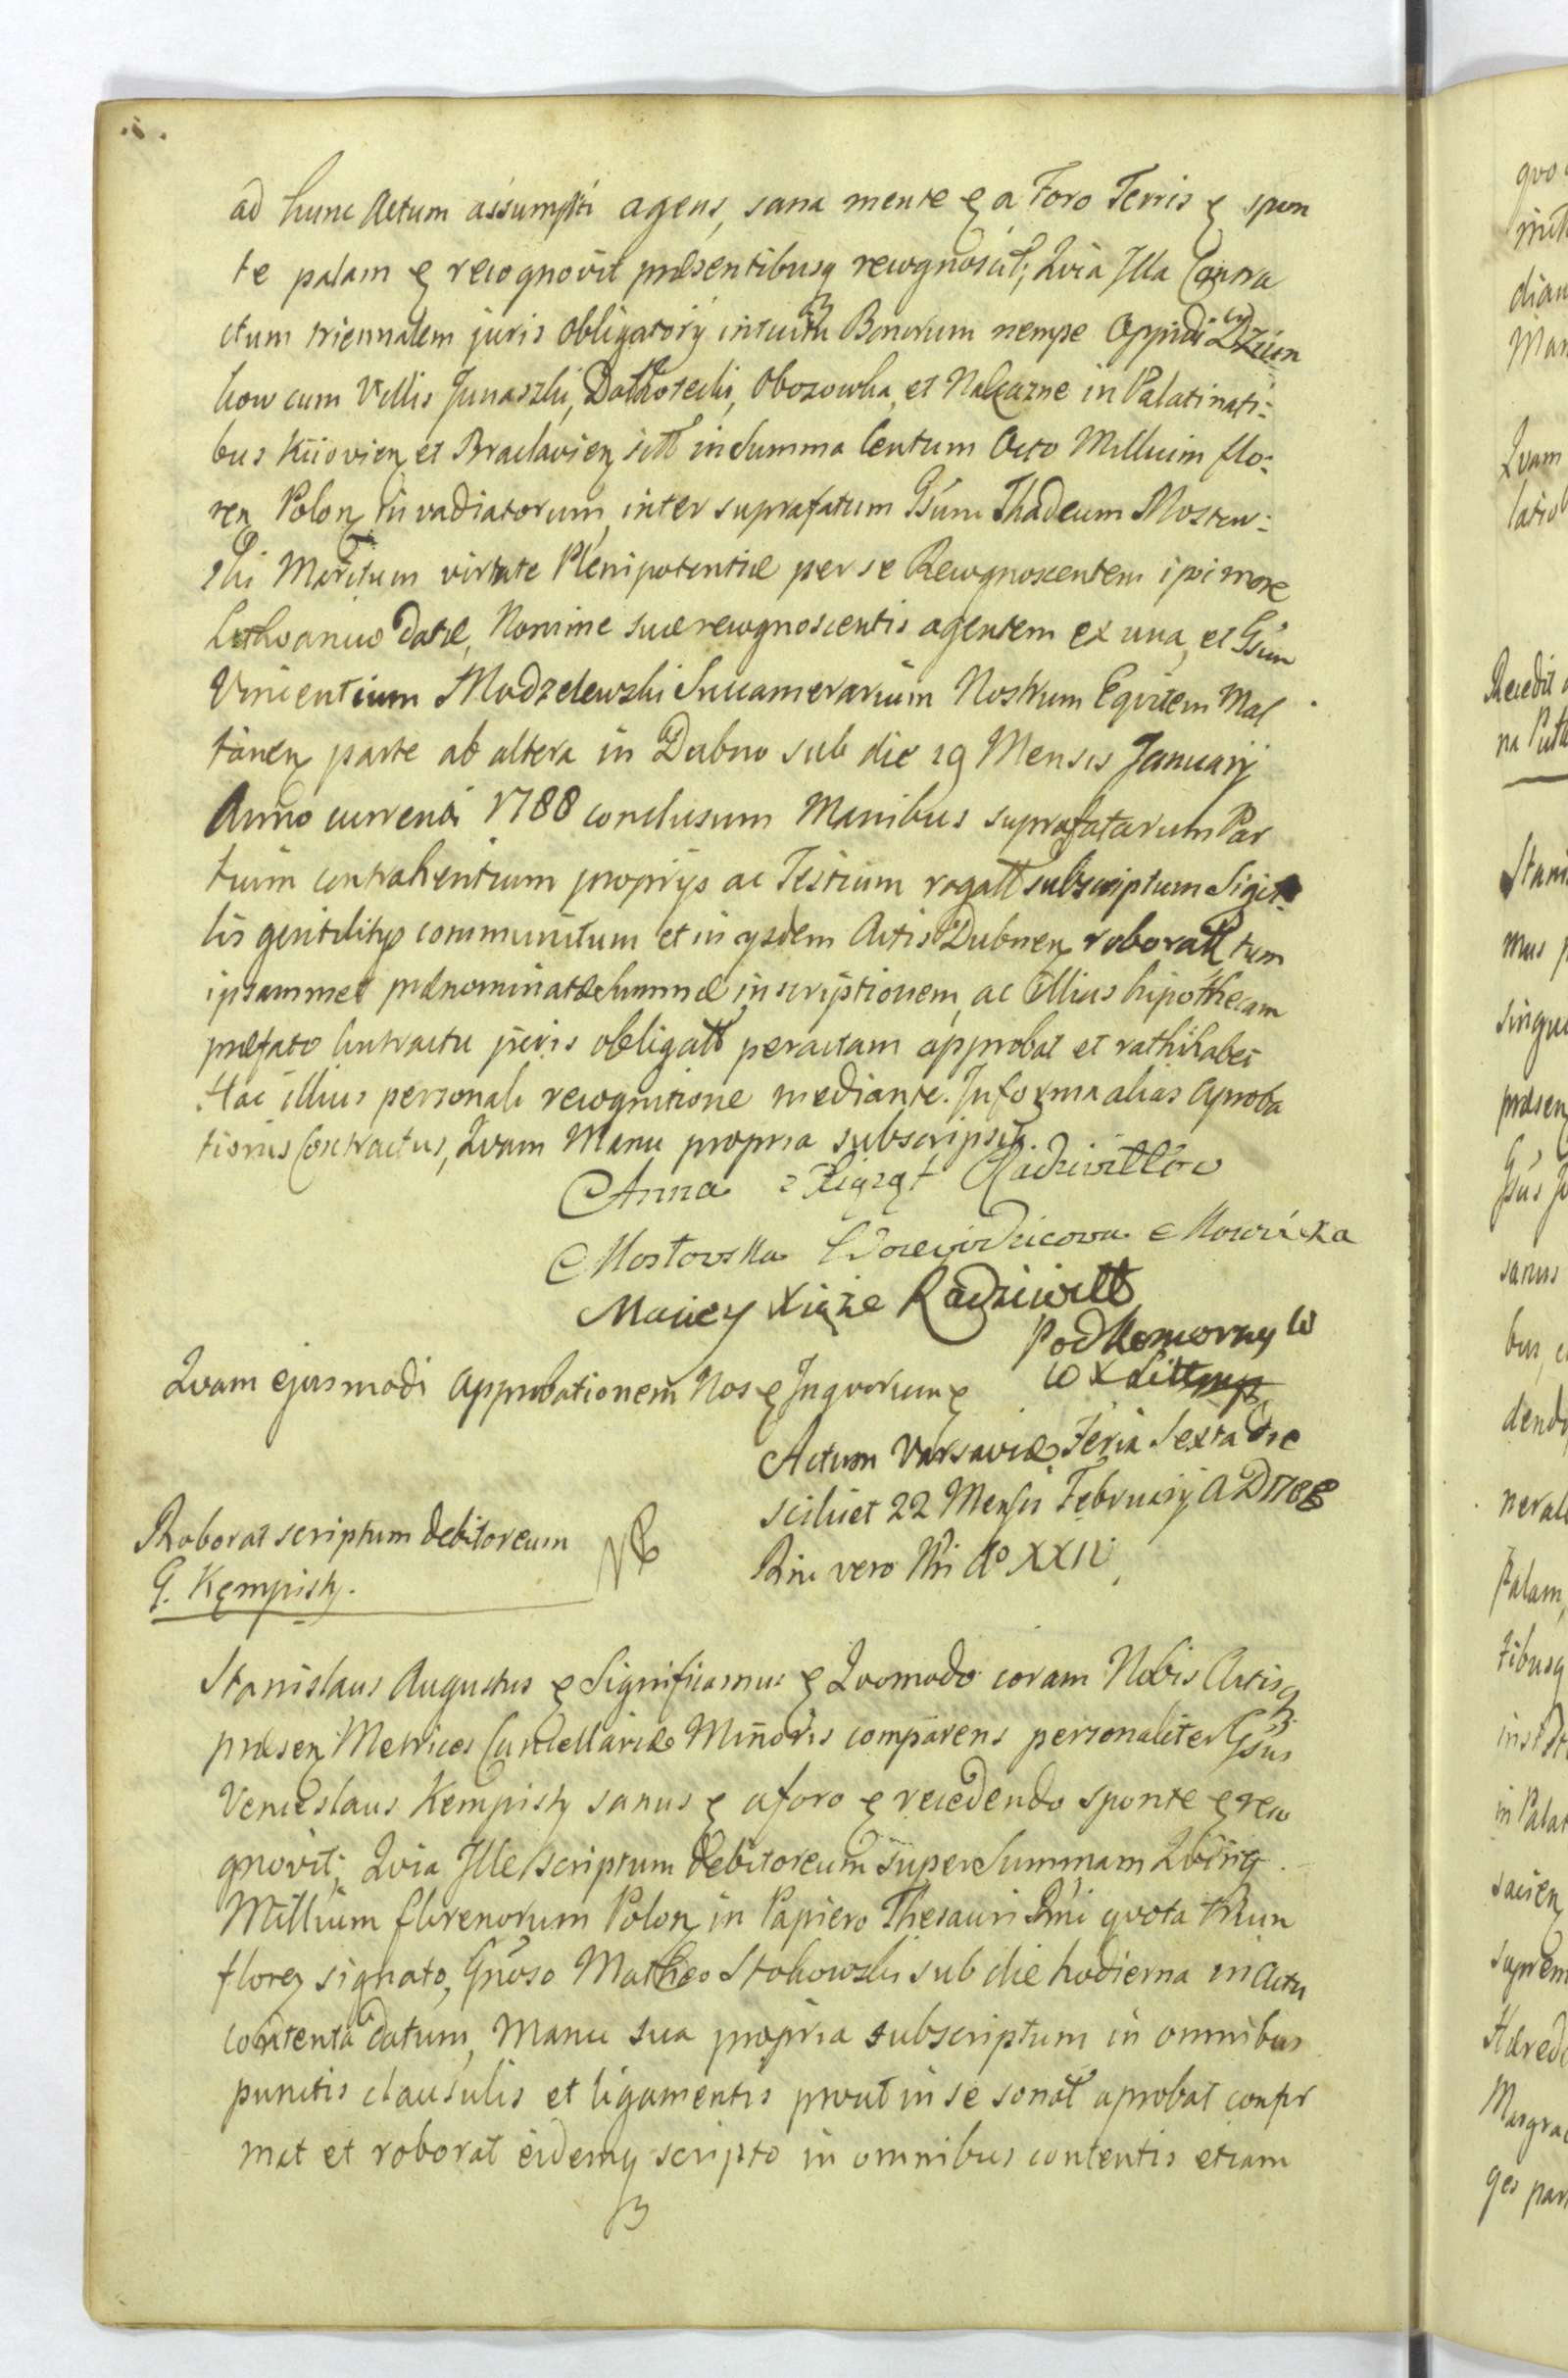 ad hunc Actum assumpti agens, sana mente & a Foro Terris & spon
te palam & recognovit præsentibusq recognoscit; Qvia Illa Contra
ctum triennalem juris obligatorij intuitu Bonorum nempe Oppidi Dziun
kow cum Villis Junaszki, Obozowka, et in Palatinati:
bus Kiiovien et Braclavien sitt in Summa Centum Octo Millium flo:
ren Polon invadiatorum inter suprafatum Gsum Thadeum Mostow:
ski Maritum virtute Plenipotentiæ per se Recognoscentem ipsi more
Lithvanico Datæ, Nomine suæ recognoscentis agentem ex una, et Gsum
Vincentium Modzelewski Succamerarium Nostrum Eqvitem Mal
tanen parte ab altera in Dubno sub die 19 Mensis Januarij
Anno currenti 1788 conclusum Manibus suprafatarum Par
tium contrahentium proprijs ac Testium rogatt subscriptum Sigil
lis gentilitijs communitum et in ijsdem Actis Dubnen roboratt tum
ipsammet prænominatæ Summæ inscriptionem, ac Illius hipothecam
præfato Contractu juris obligatt peractam approbat et rathihabet
Hac illius personali recognitione mediante. In forma alias Aproba
tionis Contractus, Qvam Manu propria subscripsit.
Anna z Xiążąt Radziwiłłow
Mostowska Woiewodzicowa Mowiecka
Maciey Xiąże Radziwiłł
Podkomorzy W
W X Litt mp
Qvam ejusmodi Approbationem Nos & Inqvorum &
Actum Varsaviæ Feria Sexta Die
scilicet 22 Mensis Februarij A D 1788
Rni vero Nri Ao XXIV
Roborat scriptum debitoreum
G. Kępisty.
Stanislaus Augustus & Significamus & Qvomodo coram Nobis Actisq
præsen Metrices Cancellariæ Minoris comparens personaliter Gsus
Venceslaus Kempisty sanus & a foro & recedendo sponte & reco
gnovit; Qvia Ille scriptum debitoreum super Summam Qvinq
Millium florenorum Polon in Papiero Thesauri Rni qvota trium
floren signato, Gnoso Matheo Stokowski sub die hodierna in Actu
contenta datum, Manu sua propria subscriptum in omnibus
punctis clausulis et ligamentis prout in se sonat aprobat confir
mat et roborat eidemq scripto in omnibus contentis etiam